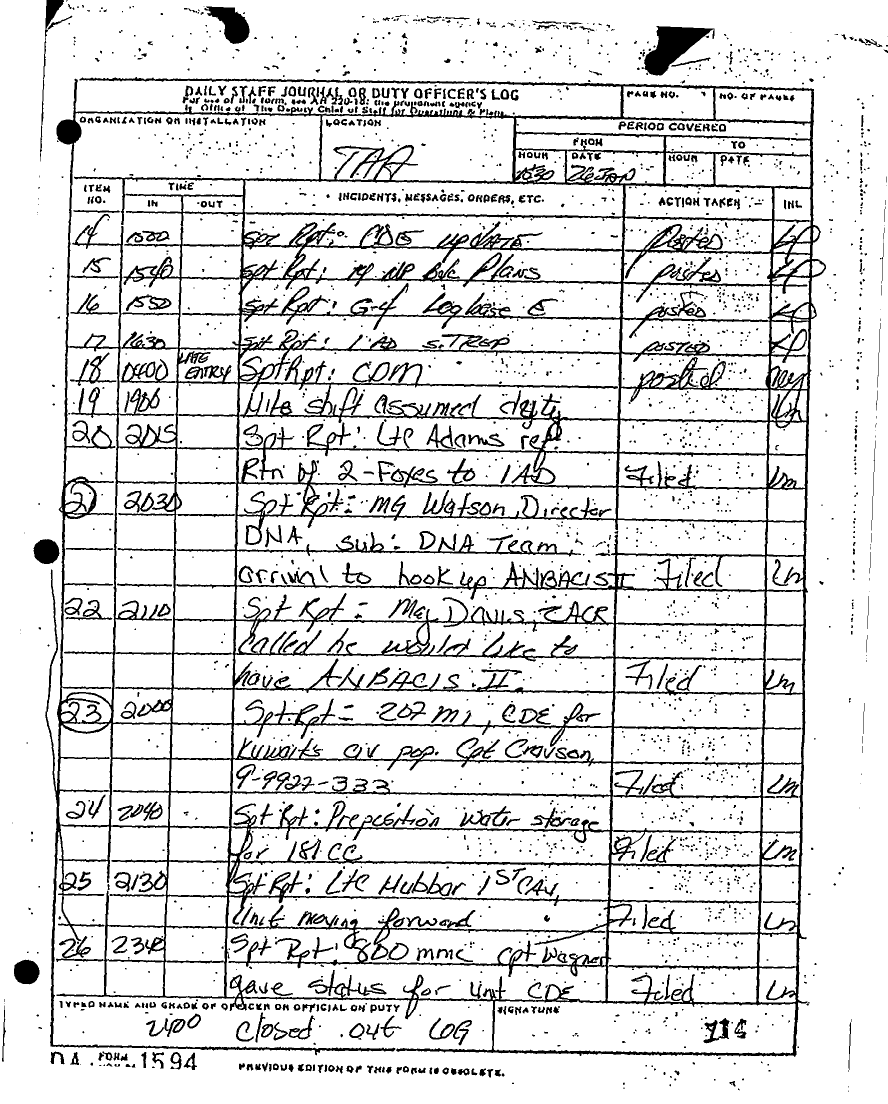 DAILY STAFF JOURNAL OR DUTY OFFICER'S LOG
For use of this form, see AR 220-15; the proponent agency
is Office of The Deputy Chief of Staff for Operations & Plans.
PAGE NO.
NO. OF PAGES
ORGANIZATION OR INSTALLATION
LOCATION
TAA
PERIOD COVERED
FROM
TO
HOUR
DATE
HOUR
DATE
26 Jan
ITEM NO.
TIME
IN
OUT
INCIDENTS, MESSAGES, ORDERS, ETC.
ACTION TAKEN
INL
14 1500 Spt Rpt: CDE update posted
15 1540 Spt Rpt: MP Plans posted
16 1550 Spt Rpt: G-4 Logbase E posted
17 1630 Spt Rpt: 1 AD posted
18 0400 LATE ENTRY Spt Rpt: COM posted
19 1900 Nite shift assumed duty Lm
20 2015 Spt Rpt: LTC Adams ref
Rtn of 2-Foxes to 1 AD Filed Lm
21 2030 Spt Rpt: MG Watson, Director
DNA, sub: DNA Team,
arrival to hook up ANBACIS II Filed Lm
22 2110 Spt Rpt - Maj Davis, 2ACR
called he would like to
have ANBACIS II. Filed Lm
23 2000 Spt Rpt - 207 MI, CDE for
Kuwaits civ pop. Cpt
9-9927-333 Filed Lm
24 2040 Spt Rpt: Preposition water storage
for Filed Lm
25 2130 Spt Rpt: LTC Hubbar 1ST CAV,
Unit moving forward Filed Lm
26 Spt Rpt: 800 mmc Cpt Wagner
gave status for unit CDE Filed Lm
TYPED NAME AND GRADE OF OFFICER OR OFFICIAL ON DUTY
SIGNATURE
2400 Closed out LOG
DA FORM 1594
PREVIOUS EDITION OF THIS FORM IS OBSOLETE.